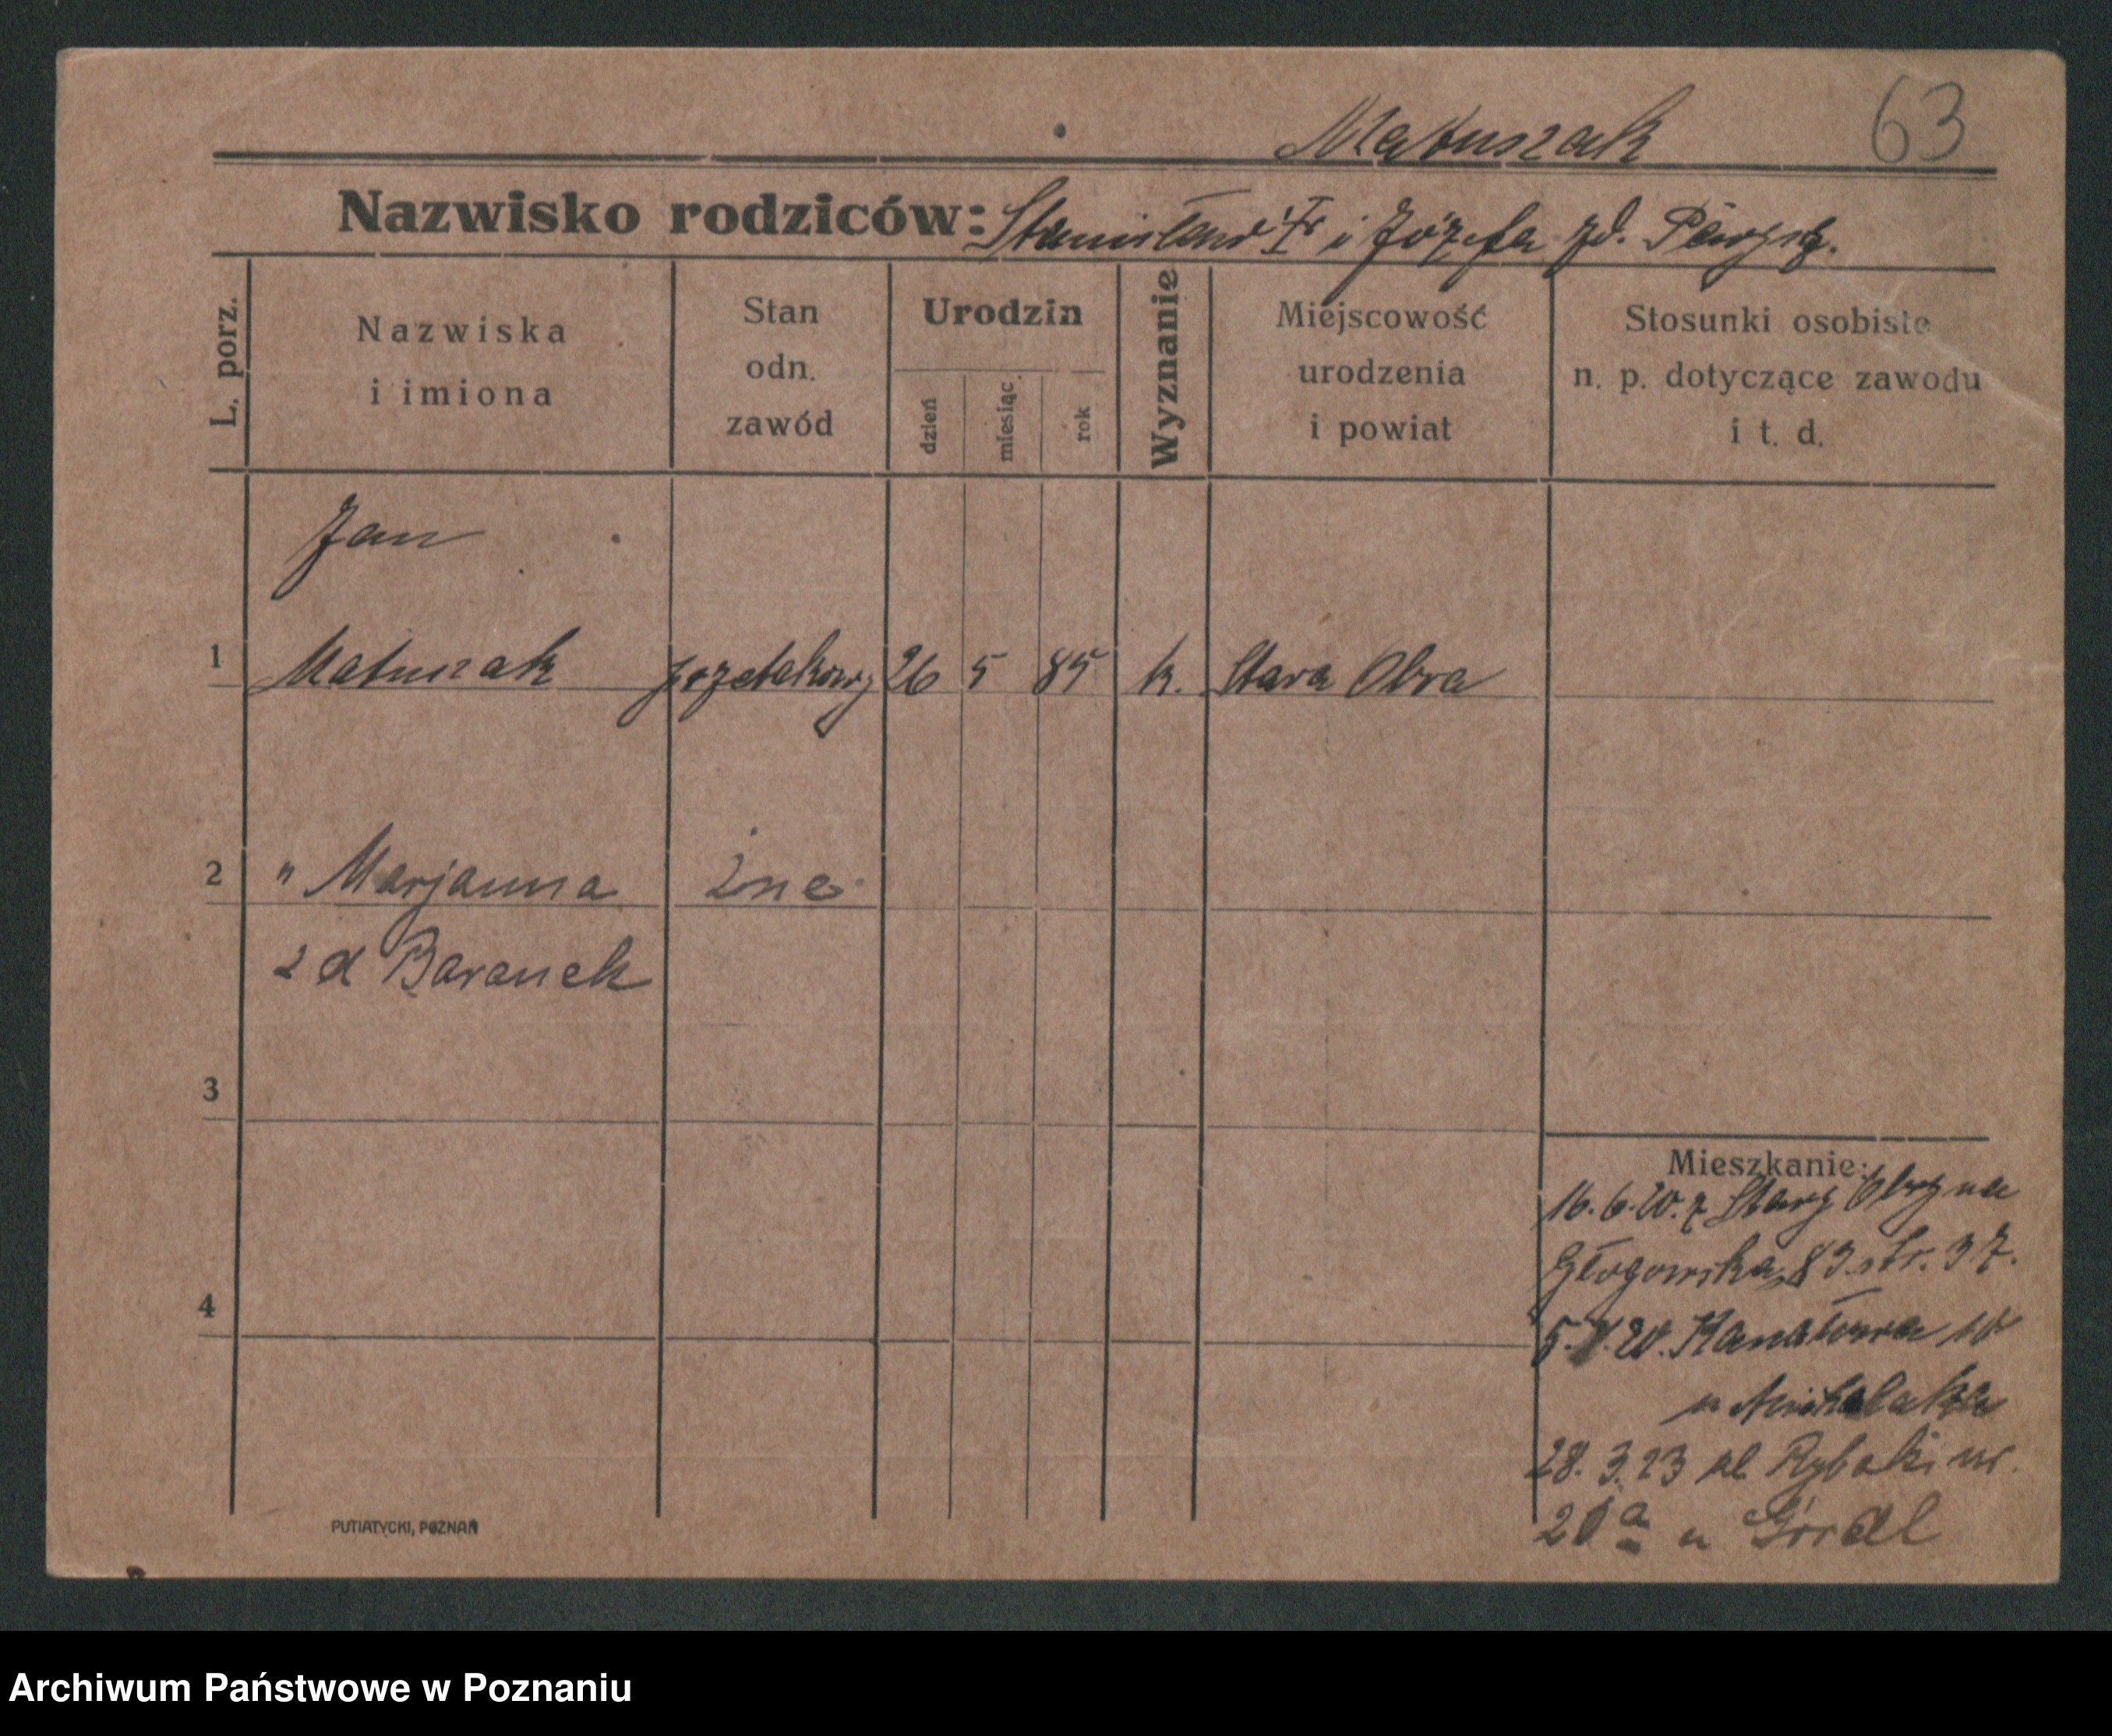 Matuszak 63
Nazwisko rodziców: Stanisław i Józefa zd.
L. porz.
Nazwiska i imiona
Stan odn. zawód
Urodzin
dzień miesiąc rok
Wyznanie
Miejscowość urodzenia i powiat
Stosunki osobiste n. p. dotyczące zawodu i t. d.
Jan
1 Matuszak 26 5 85 k. Stara Obra
2 " Marjanna żne
zd Baranek
3
Mieszkanie:
16.6.20. z Starej Obry na
Głogowska 83 str. 37.
4
20. Kanałowa 10
u
28.3.23 ul Rybaki nr.
20a u Góral
PUTIATYCKI, POZNAŃ
Archiwum Państwowe w Poznaniu